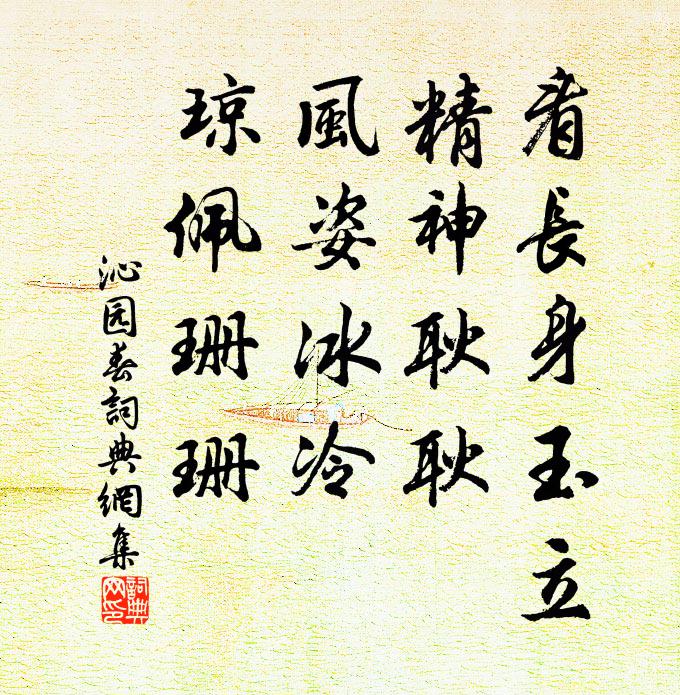 看長身玉立
精神耿耿
風姿冰冷
琼佩珊珊
沁园春詞典網集
詞典网印